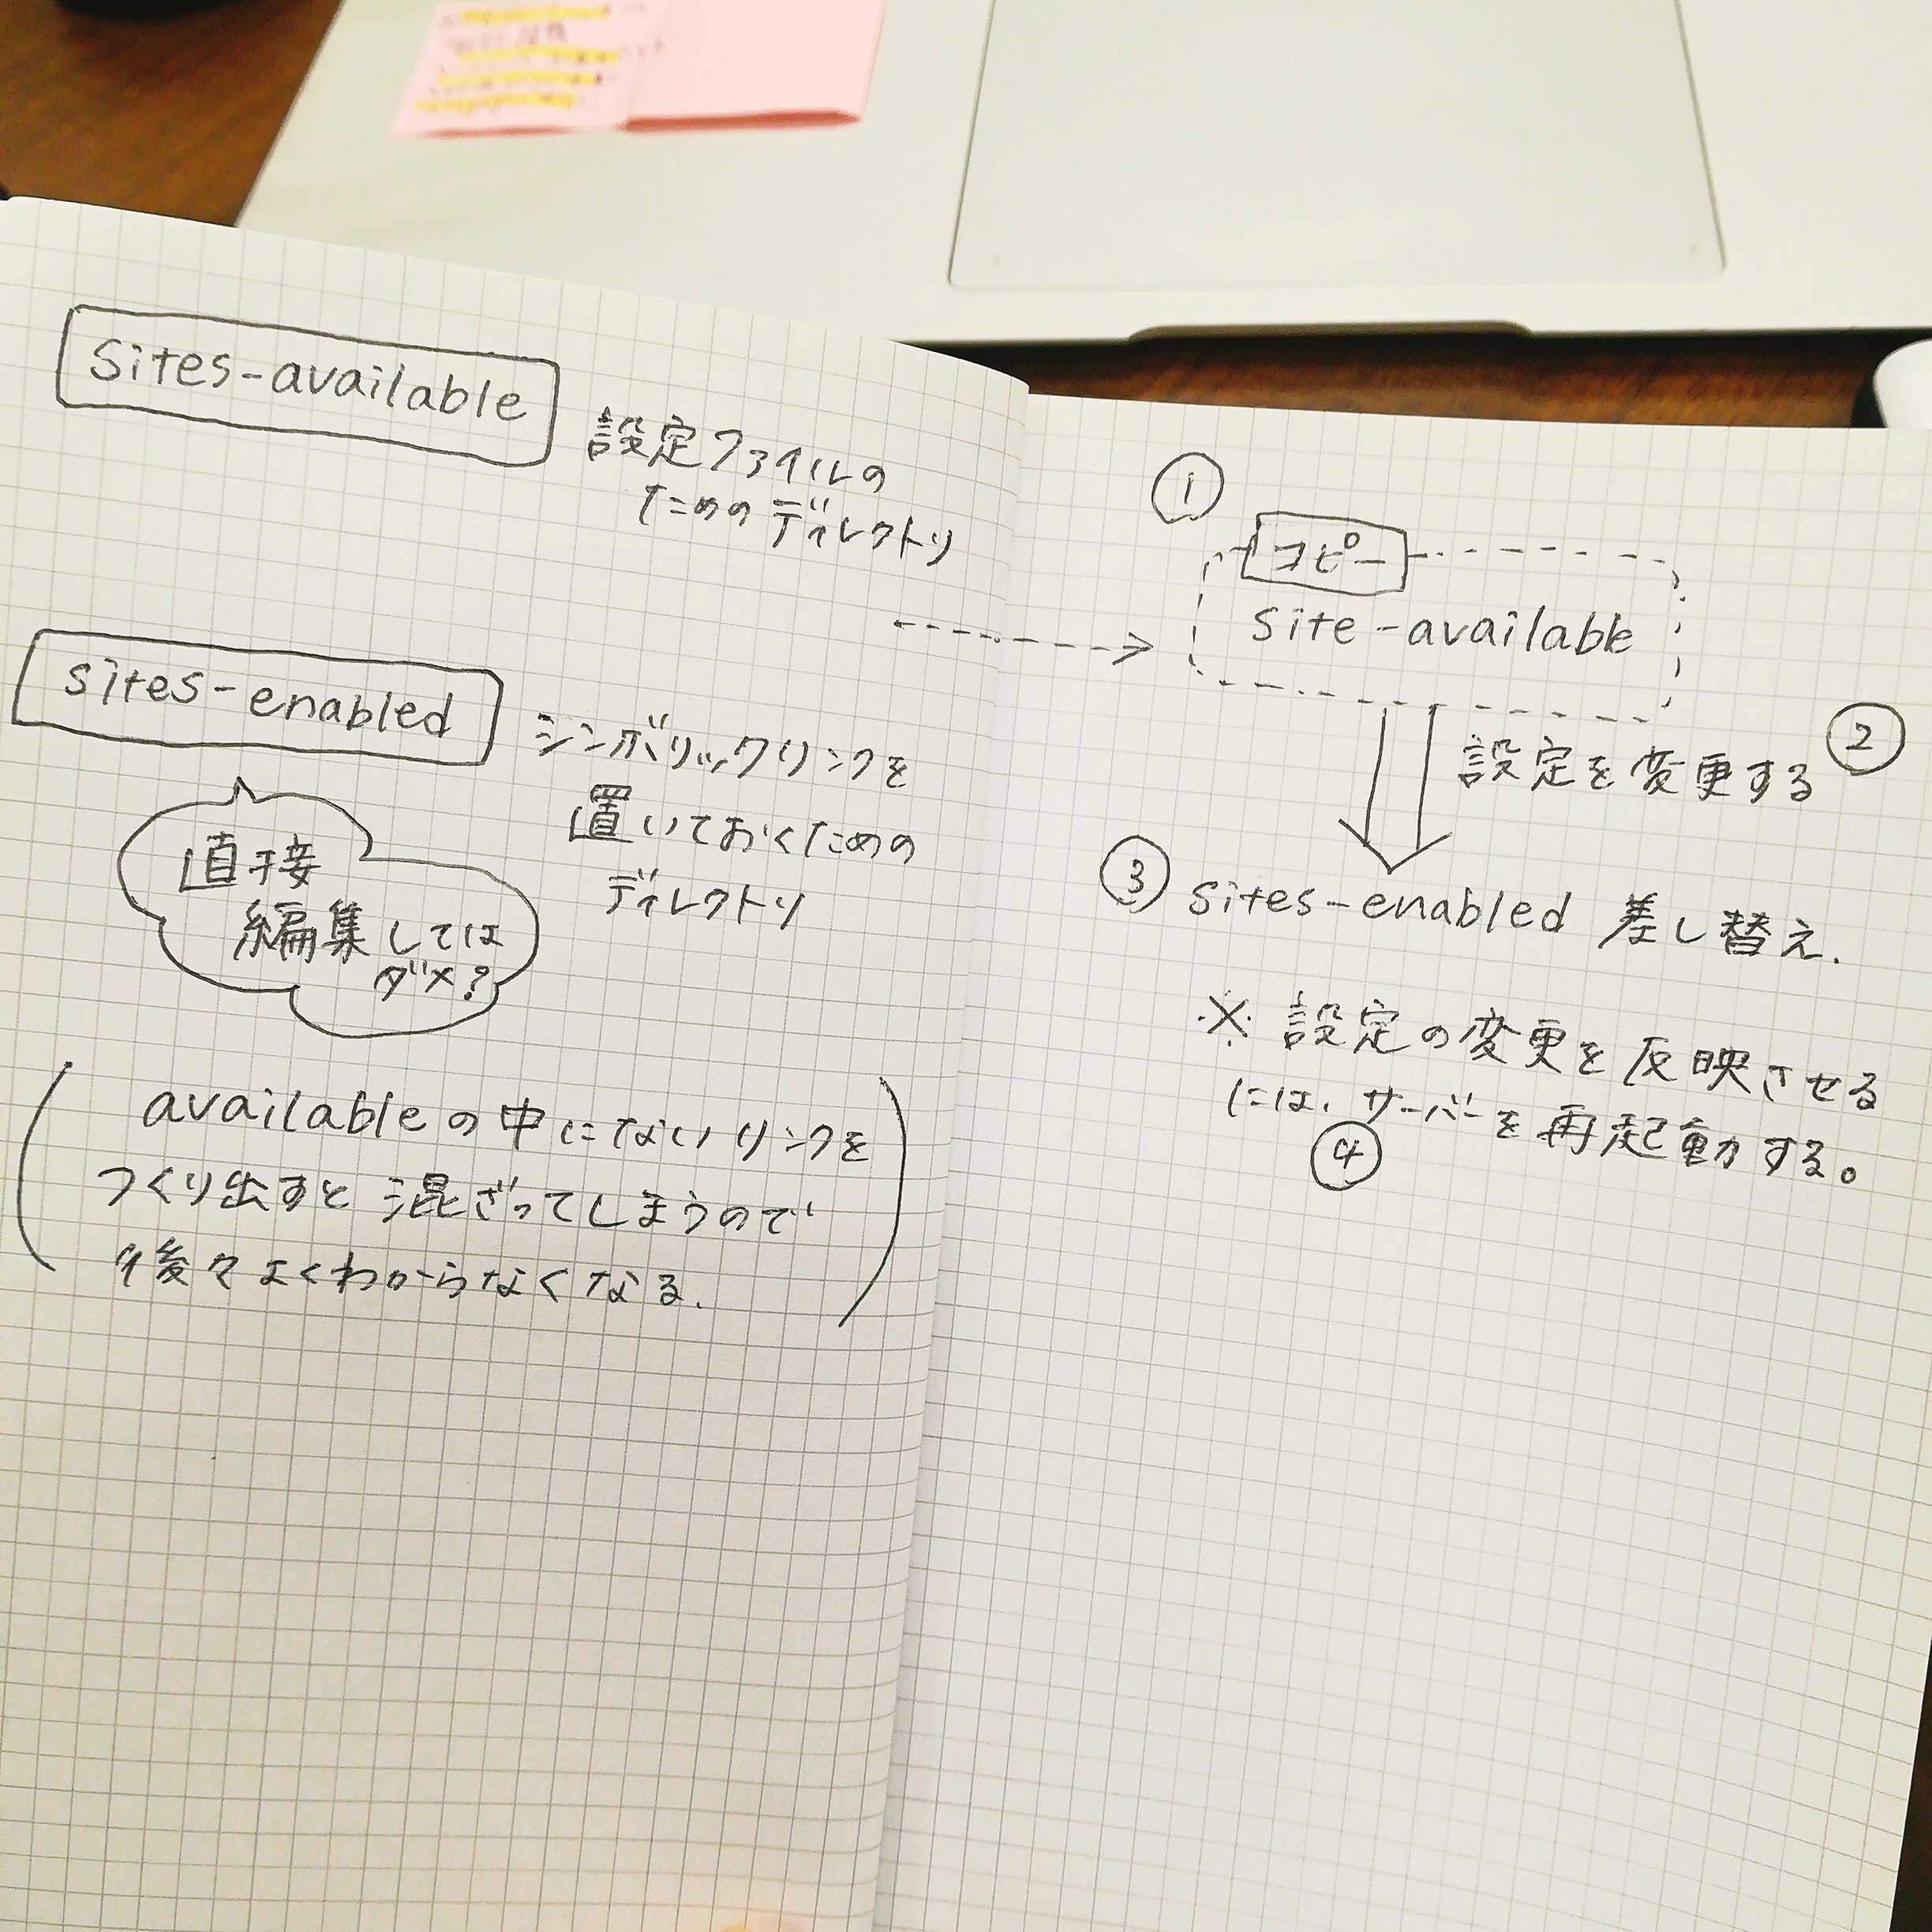 sites-available
設定ファイルの
ためのディレクトリ
sites-enabled
シンボリックリンクを
置いておくための
ディレクトリ
直接
編集しては
ダメ?
availableの中にないリンクを
つくり出すと混ざってしまうので
後々よくわからなくなる.
①
コピー
site-available
設定を変更する ②
③ sites-enabled 差し替え.
※ 設定の変更を反映させる
には、サーバーを再起動する。
④